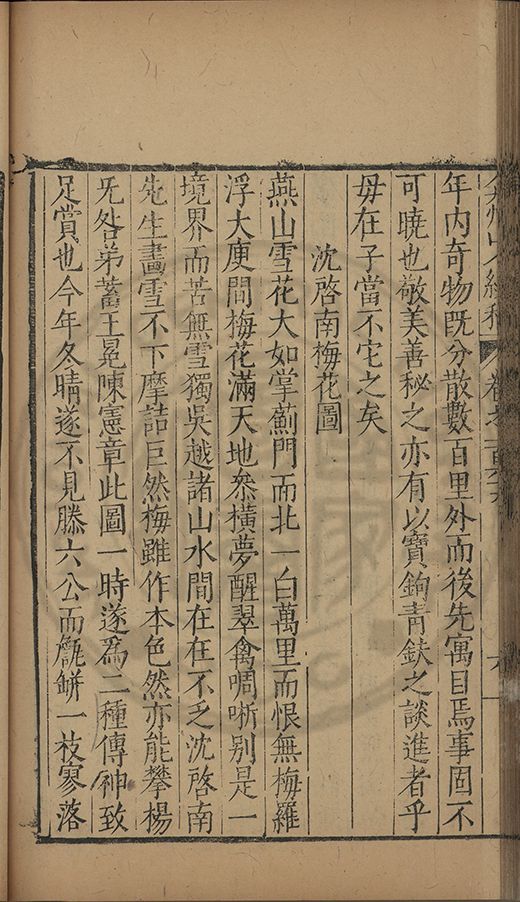 年内奇物既分散數百里外而後先寓目焉事固不
可曉也敬美善秘之亦有以寶鉤青鈇之談進者乎
毋在子當不它之矣
沈啓南梅花圖
燕山雪花大如掌薊門而北一白萬里而恨無梅羅
浮大庾間梅花滿天地叅橫夢醒翠禽啁哳别是一
境界而苦無雪獨吳越諸山水間在在不乏沈啓南
先生畵雪不下摩詰巨然梅雖作本色然亦能攀楊
旡咎弟蓄王冕陳憲章此圖一時遂爲二種傳神致
足賞也今年冬晴遂不見滕六公而膽缾一枝寥落